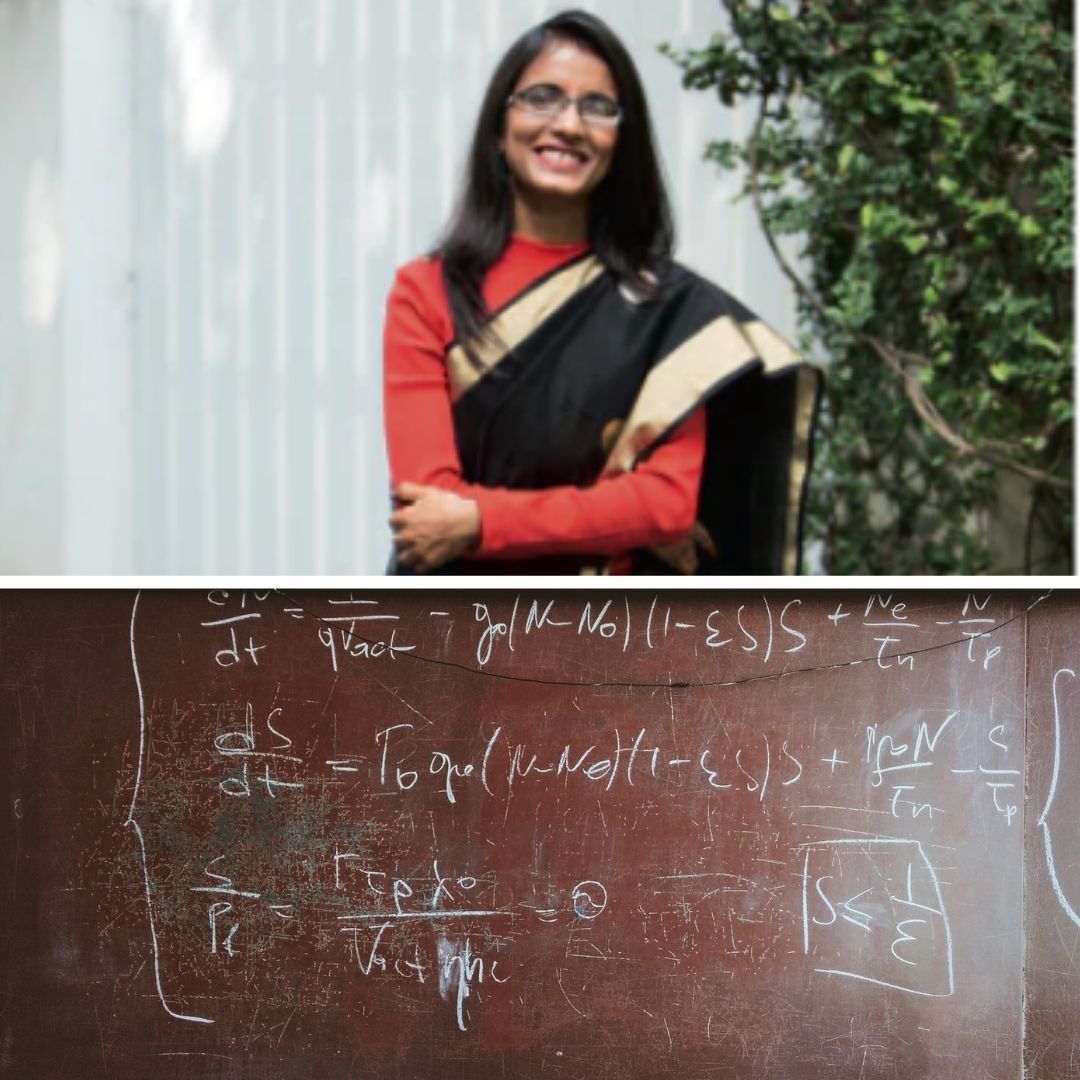 dN/dt = I/qVact - g0(N-N0)(1-εS)S + Ne/τn - N/τp
dS/dt = Γ0 g0(N-N0)(1-εS)S + N/τn - S/τp
S/Pf = Γτpλ0/Vact ηhc =
S ≤ 1/ε